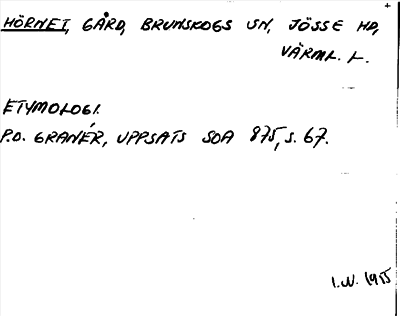 HÖRNET, GÅRD, BRUNSKOGS SN, JÖSSE HD,
VÄRML. L.
ETYMOLOGI.
P.O. GRANÉR, UPPSATS SOA 875, S. 67.
I.W. 1955